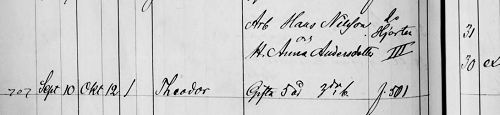 Arb Hans Nilsson
Hjorten
o
31
H. Anna Andersdotter III
30 ex
Sept 10 Okt 12 1 Theodor Gifta 5 år 3 f. 501